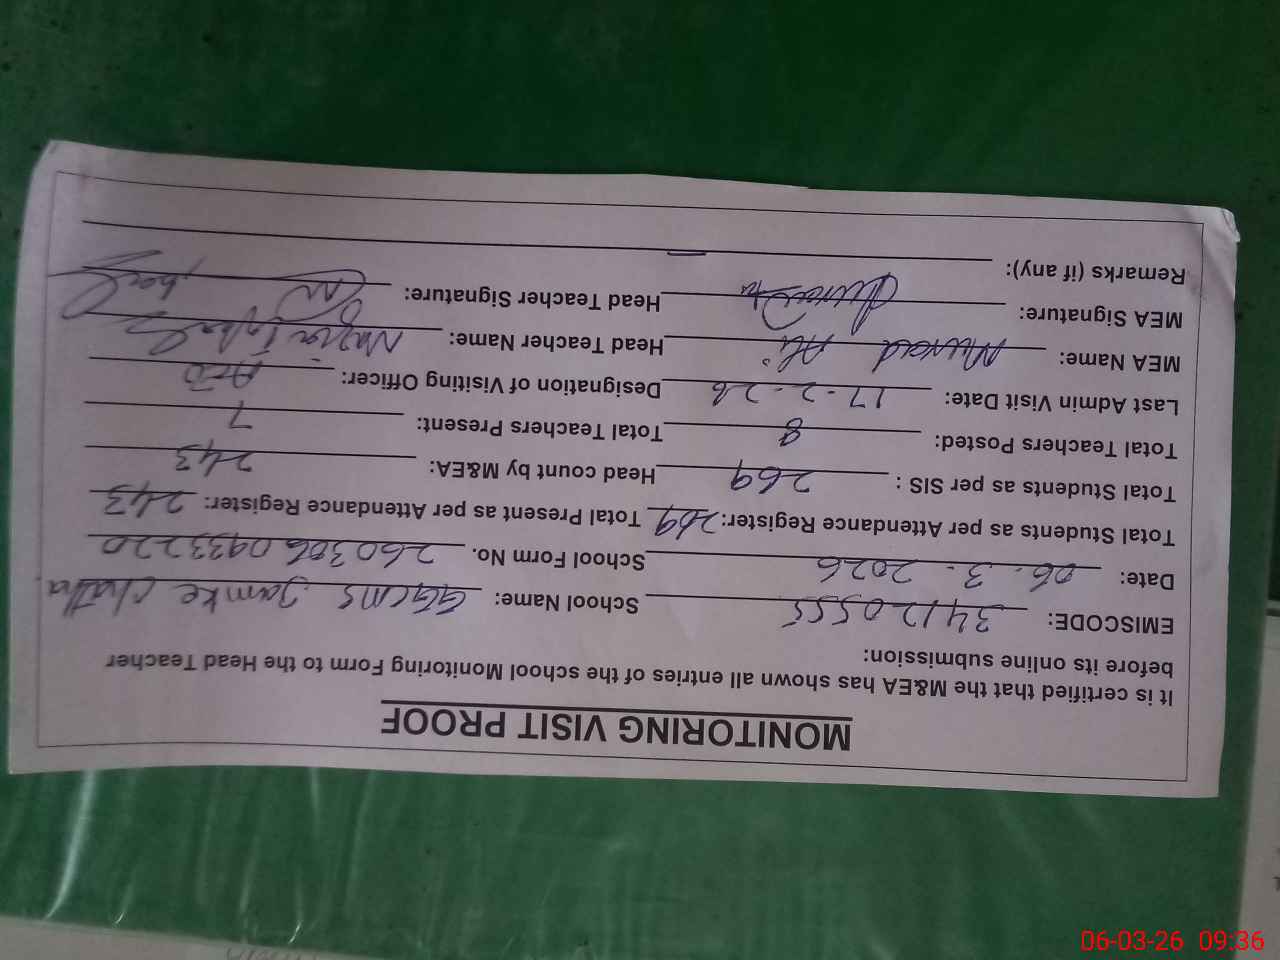 MONITORING VISIT PROOF
It is certified that the M&EA has shown all entries of the school Monitoring Form to the Head Teacher
before its online submission:
EMISCODE: 34120555 School Name: GGCMS Jamke Chatha
Date: 06-3-2026 School Form No. 2603060933220
Total Students as per Attendance Register: 269 Total Present as per Attendance Register: 243
Total Students as per SIS : 269 Head count by M&EA: 243
Total Teachers Posted: 8 Total Teachers Present: 7
Last Admin Visit Date: 17-2-26 Designation of Visiting Officer:
MEA Name: Murad Ali Head Teacher Name: Nazia Iqbal
MEA Signature: Head Teacher Signature:
Remarks (if any): —
06-03-26 09:36